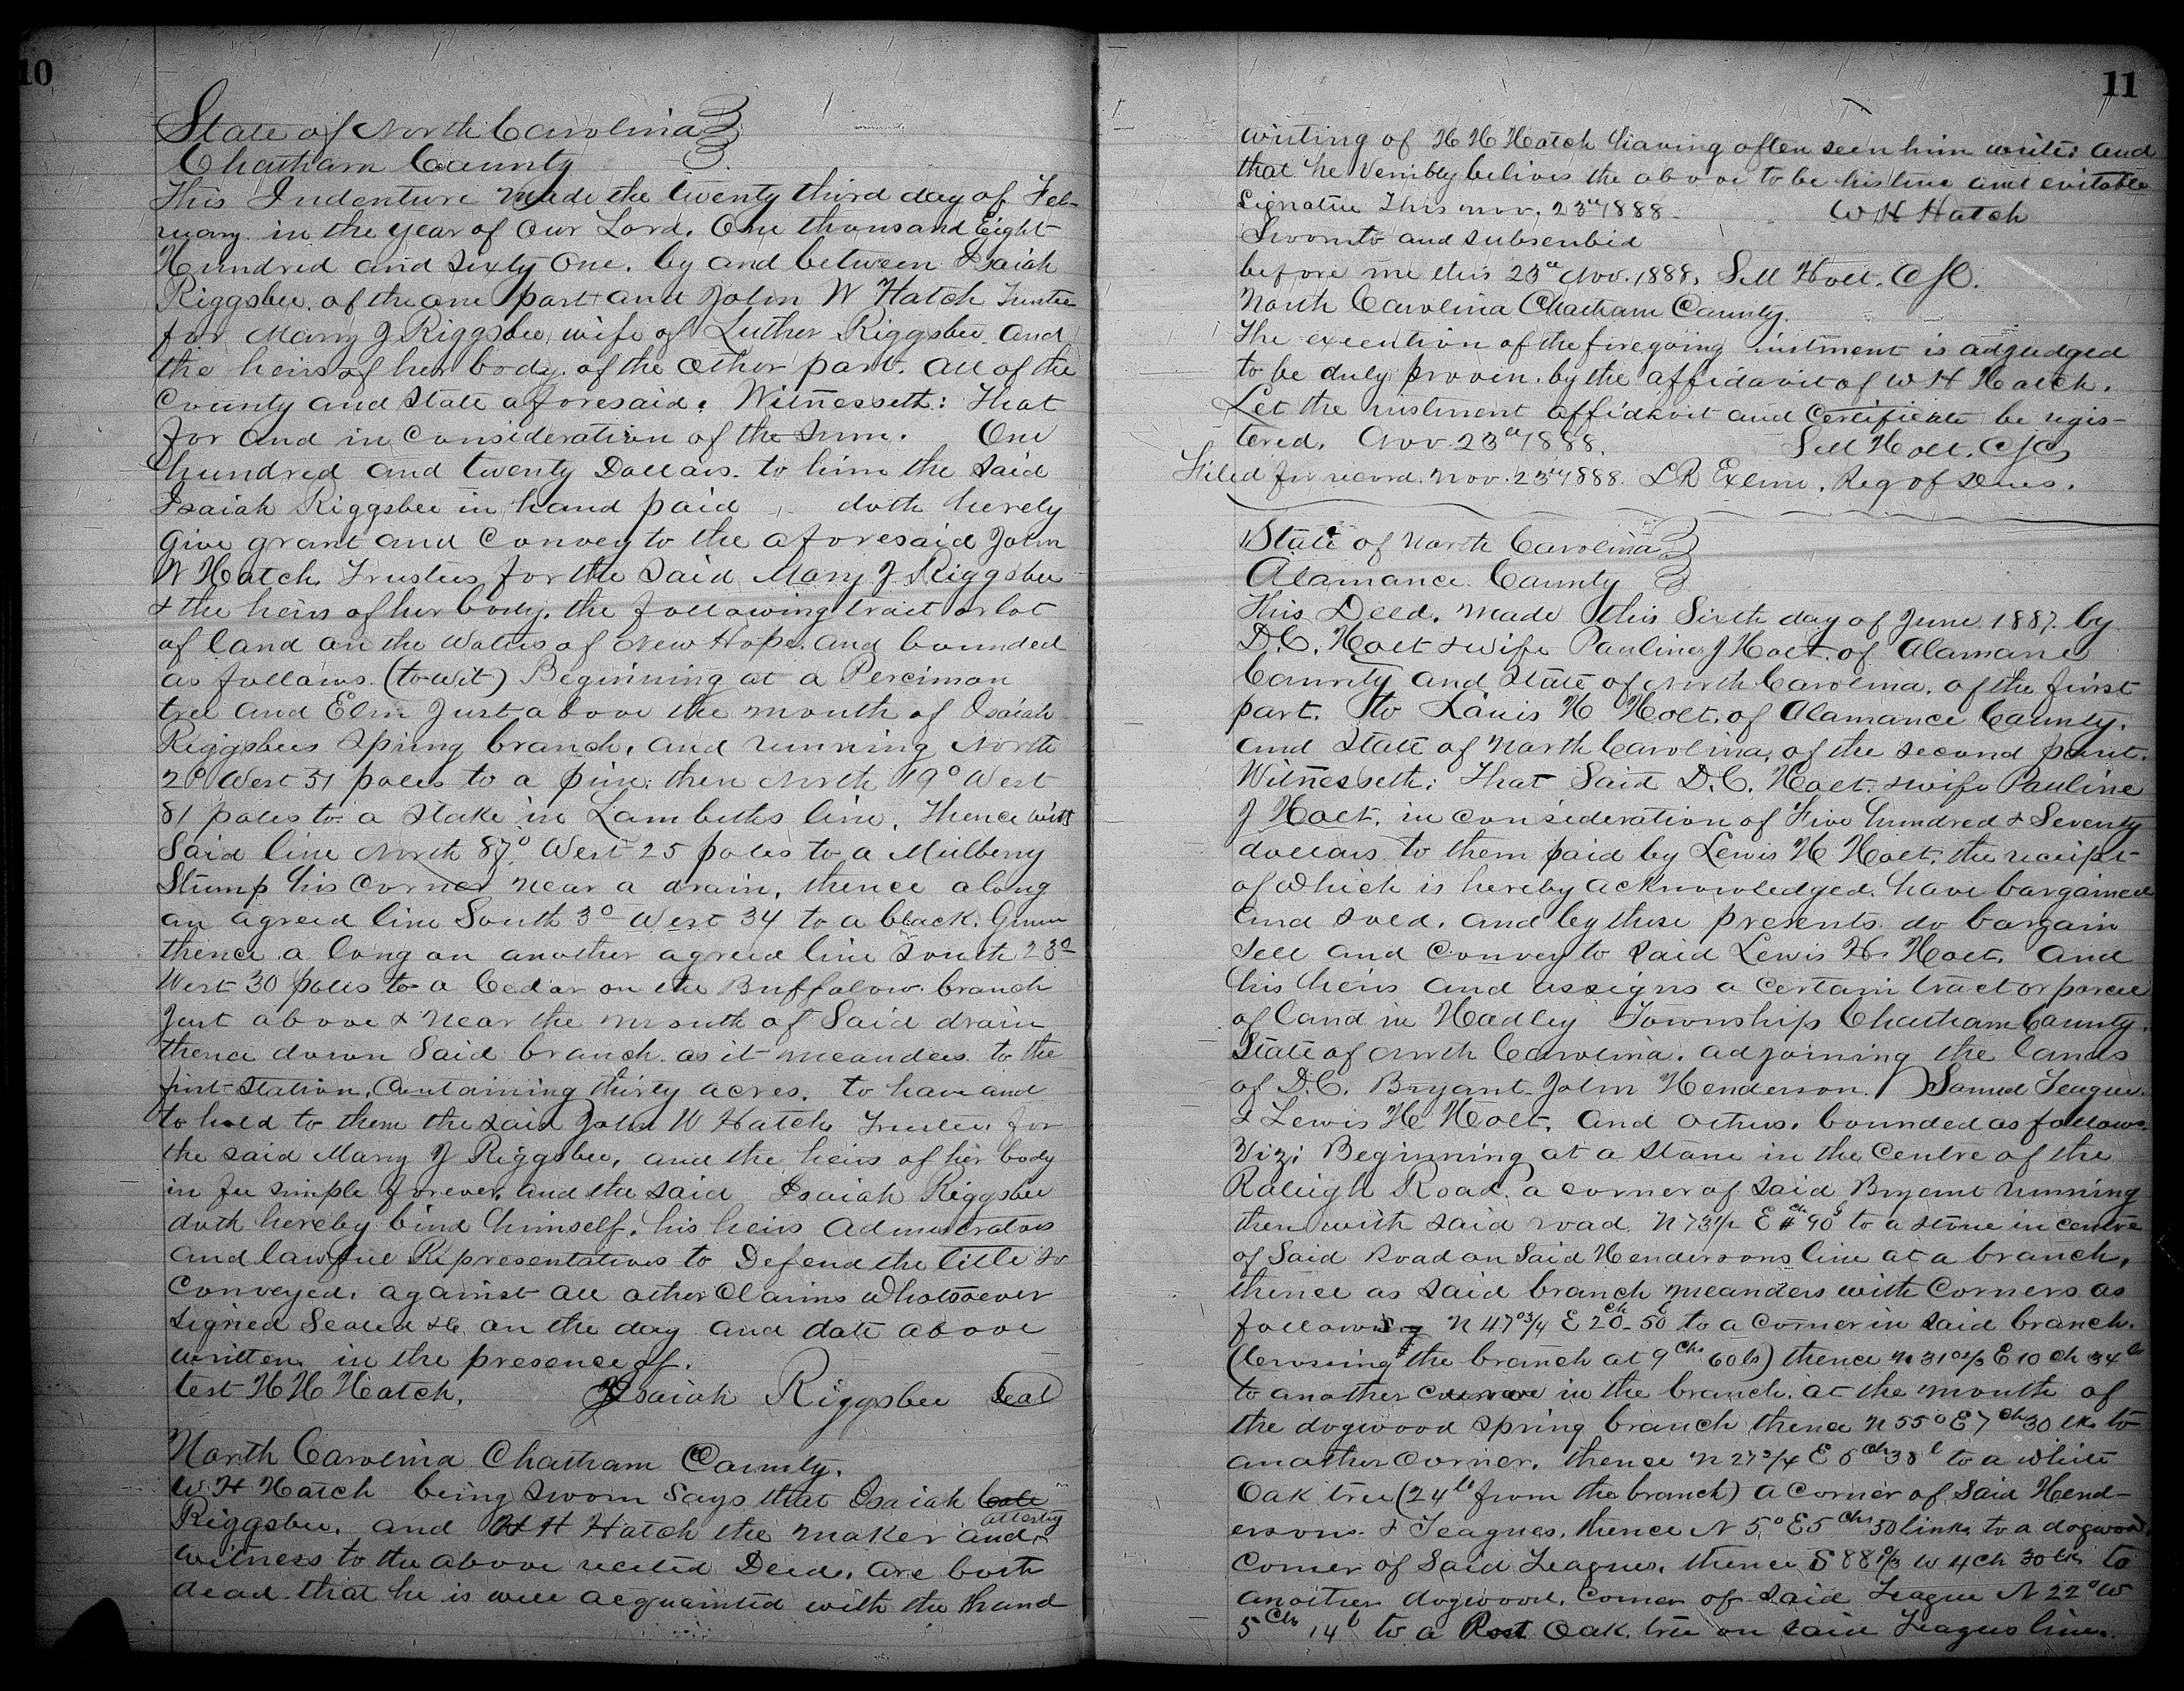 10
State of North Carolina
Chatham County
This Indenture made the twenty third day of Feb-
ruary in the year of Our Lord. One thousand Eight
Hundred and Sixty One. by and between Isaiah
Riggsbee. of the one part and John W Hatch Trustee
for Mary J Riggsbee, wife of Luther Riggsbee and
the heirs of her body. of the Other part. all of the
County and State aforesaid. Witnesseth: That
for and in Consideration of the sum. One
hundred and twenty Dollars. to him the Said
Isaiah Riggsbee in hand paid doth hereby
Give grant and Convey to the aforesaid John
W Hatch Trustees, for the Said Mary J Riggsbee
& the heirs of her body. the following tract or lot
of land on the Watters of New Hope. and bounded
as follows. (to-wit) Beginning at a Perciman
tree and Elm Just above the mouth of Isaiah
Riggsbees Spring branch, and running North
2° West 51 poles to a pine. then North 19° West
81 poles to a Stake in Lambeths line. Thence with
Said line North 87° West 25 poles to a Mulberry
Stump his Corner near a drain. thence along
an agreed line South 3° West 34 to a black. Gum
thence a long an another agreed line South 28°
West 30 poles to a Cedar on the Buffalow branch
Just above & Near the mouth of Said drain
thence down Said branch. as it meanders to the
first Station, Containing thirty acres. to have and
to hold to them the said John W Hatch Trustee. for
the said Mary J Riggsbee, and the heirs of her body
in fee simple forever, and the said Isaiah Riggsbee
doth hereby bind himself. his heirs Administrators
and lawful Representatives to Defend the title so
Conveyed. against all other Claims Whatsoever
Signed Sealed &c. on the day and date above
written in the presence of.
test H H Hatch. Isaiah Riggsbee Seal
North Carolina Chatham County.
W. H Hatch being Sworn Says that Isaiah
Riggsbee. and H H Hatch the maker and attesting
witness to the above recited Deed. are both
dead. that he is well acquainted with the hand
11
writing of H H Hatch having often seen him write: and
that he verribly belives the above to be his true and
Signature This nov. 23rd 1888. W H Hatch
Sworn to and subscribed
before me this 23rd Nov. 1888. S M Holt. CSC.
North Carolina Chatham County.
The execution of the foregoing instment is adjudged
to be duly proven. by the affidavit of W H Hatch.
Let the instment affidavit and Certificate be regis-
tered. Nov 23rd 1888. S M Holt. CSC
Filed for record. Nov. 23rd 1888. L R Exline. Reg of Deeds.
State of North Carolina
Alamance County
This Deed. made this Sixth day of June 1887. by
D. C. Holt & wife Pauline J Holt. of Alamance
County and State of North Carolina. of the first
part. To Lauis H Holt. of Alamance County.
and State of North Carolina, of the second part.
Witnesseth: That Said D. C. Holt. & wife Pauline
J Holt. in consideration of Five hundred & Seventy
dollars to them paid by Lewis H Holt. the receipt
of which is hereby acknowledged. have bargained
and sold. and by these presents do bargain
sell and convey to Said Lewis H. Holt. and
his heirs and assigns a certain tract or parcel
of land in Hadley Township Chatham County.
State of North Carolina. adjoining the lands
of D. C. Bryant. John Henderson. Samuel Teague.
& Lewis H Holt. and others. bounded as follows.
Viz: Beginning at a Stone in the Centre of the
Raleigh Road. a corner of said Bryant running
then with said road. N 73 1/2 E 4 Ch 90 l to a stone in centre
of Said Road on Said Hendersons line at a branch.
thence as said branch meanders with Corners as
following N 47° 3/4 E 20 Ch 50 l to a Corner in said branch.
(Crossing the branch at 9 Chs 60 ls) thence N 31° E 10 ch 34 ls
to another in the branch. at the mouth of
the dogwood Spring branch thence N 55° E 7 Chs 30 lks to
another Corner. thence N 27 3/4 E 5 Chs 38 l to a White
Oak tree (24 ls from the branch) a Corner of Said Hend-
ersons & Teagues. thence N 5° E 5 Chs 50 links to a dogwood.
Corner of Said Teagues. thence S 88 1/3 W 4 Ch 30 lks to
another dogwood. Corner of said Teague N 22° W
5 Chs 14 l to a Post Oak. tree on said Teagues line.